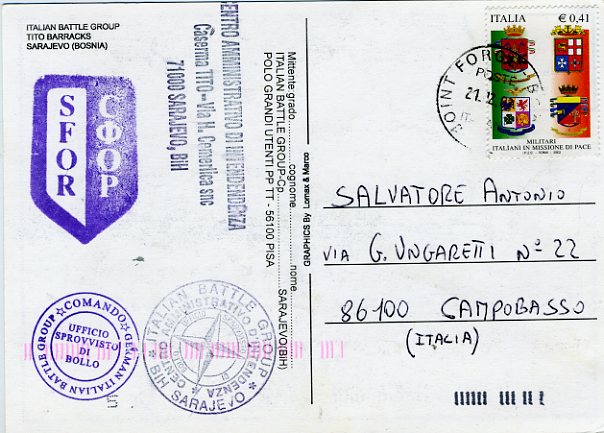 ITALIAN BATTLE GROUP
TITO BARRACKS
SARAJEVO (BOSNIA)
SFOR
CФOP
CENTRO AMMINISTRATIVO DI INTENDENZA
Caserma TITO - Via H. Cemerlica snc
71000 SARAJEVO, BIH
Mittente grado..........cognome..........nome..........
ITALIAN BATTLE GROUP-Cp.......... SARAJEVO(BIH)
POLO GRANDI UTENTI PP TT - 56100 PISA
GRAPHICS By Lomax & Marco
COMANDO
GERMAN ITALIAN BATTLE GROUP
UFFICIO
SPROVVISTO
DI
BOLLO
ITALIAN BATTLE GROUP
BIH SARAJEVO
CENTRO AMMINISTRATIVO DI INTENDENZA
ITALIA € 0,41
JOINT FORGE
POSTE
21.12.
MILITARI
ITALIANI IN MISSIONE DI PACE
SALVATORE ANTONIO
VIA G. UNGARETTI N° 22
86100 CAMPOBASSO
(ITALIA)